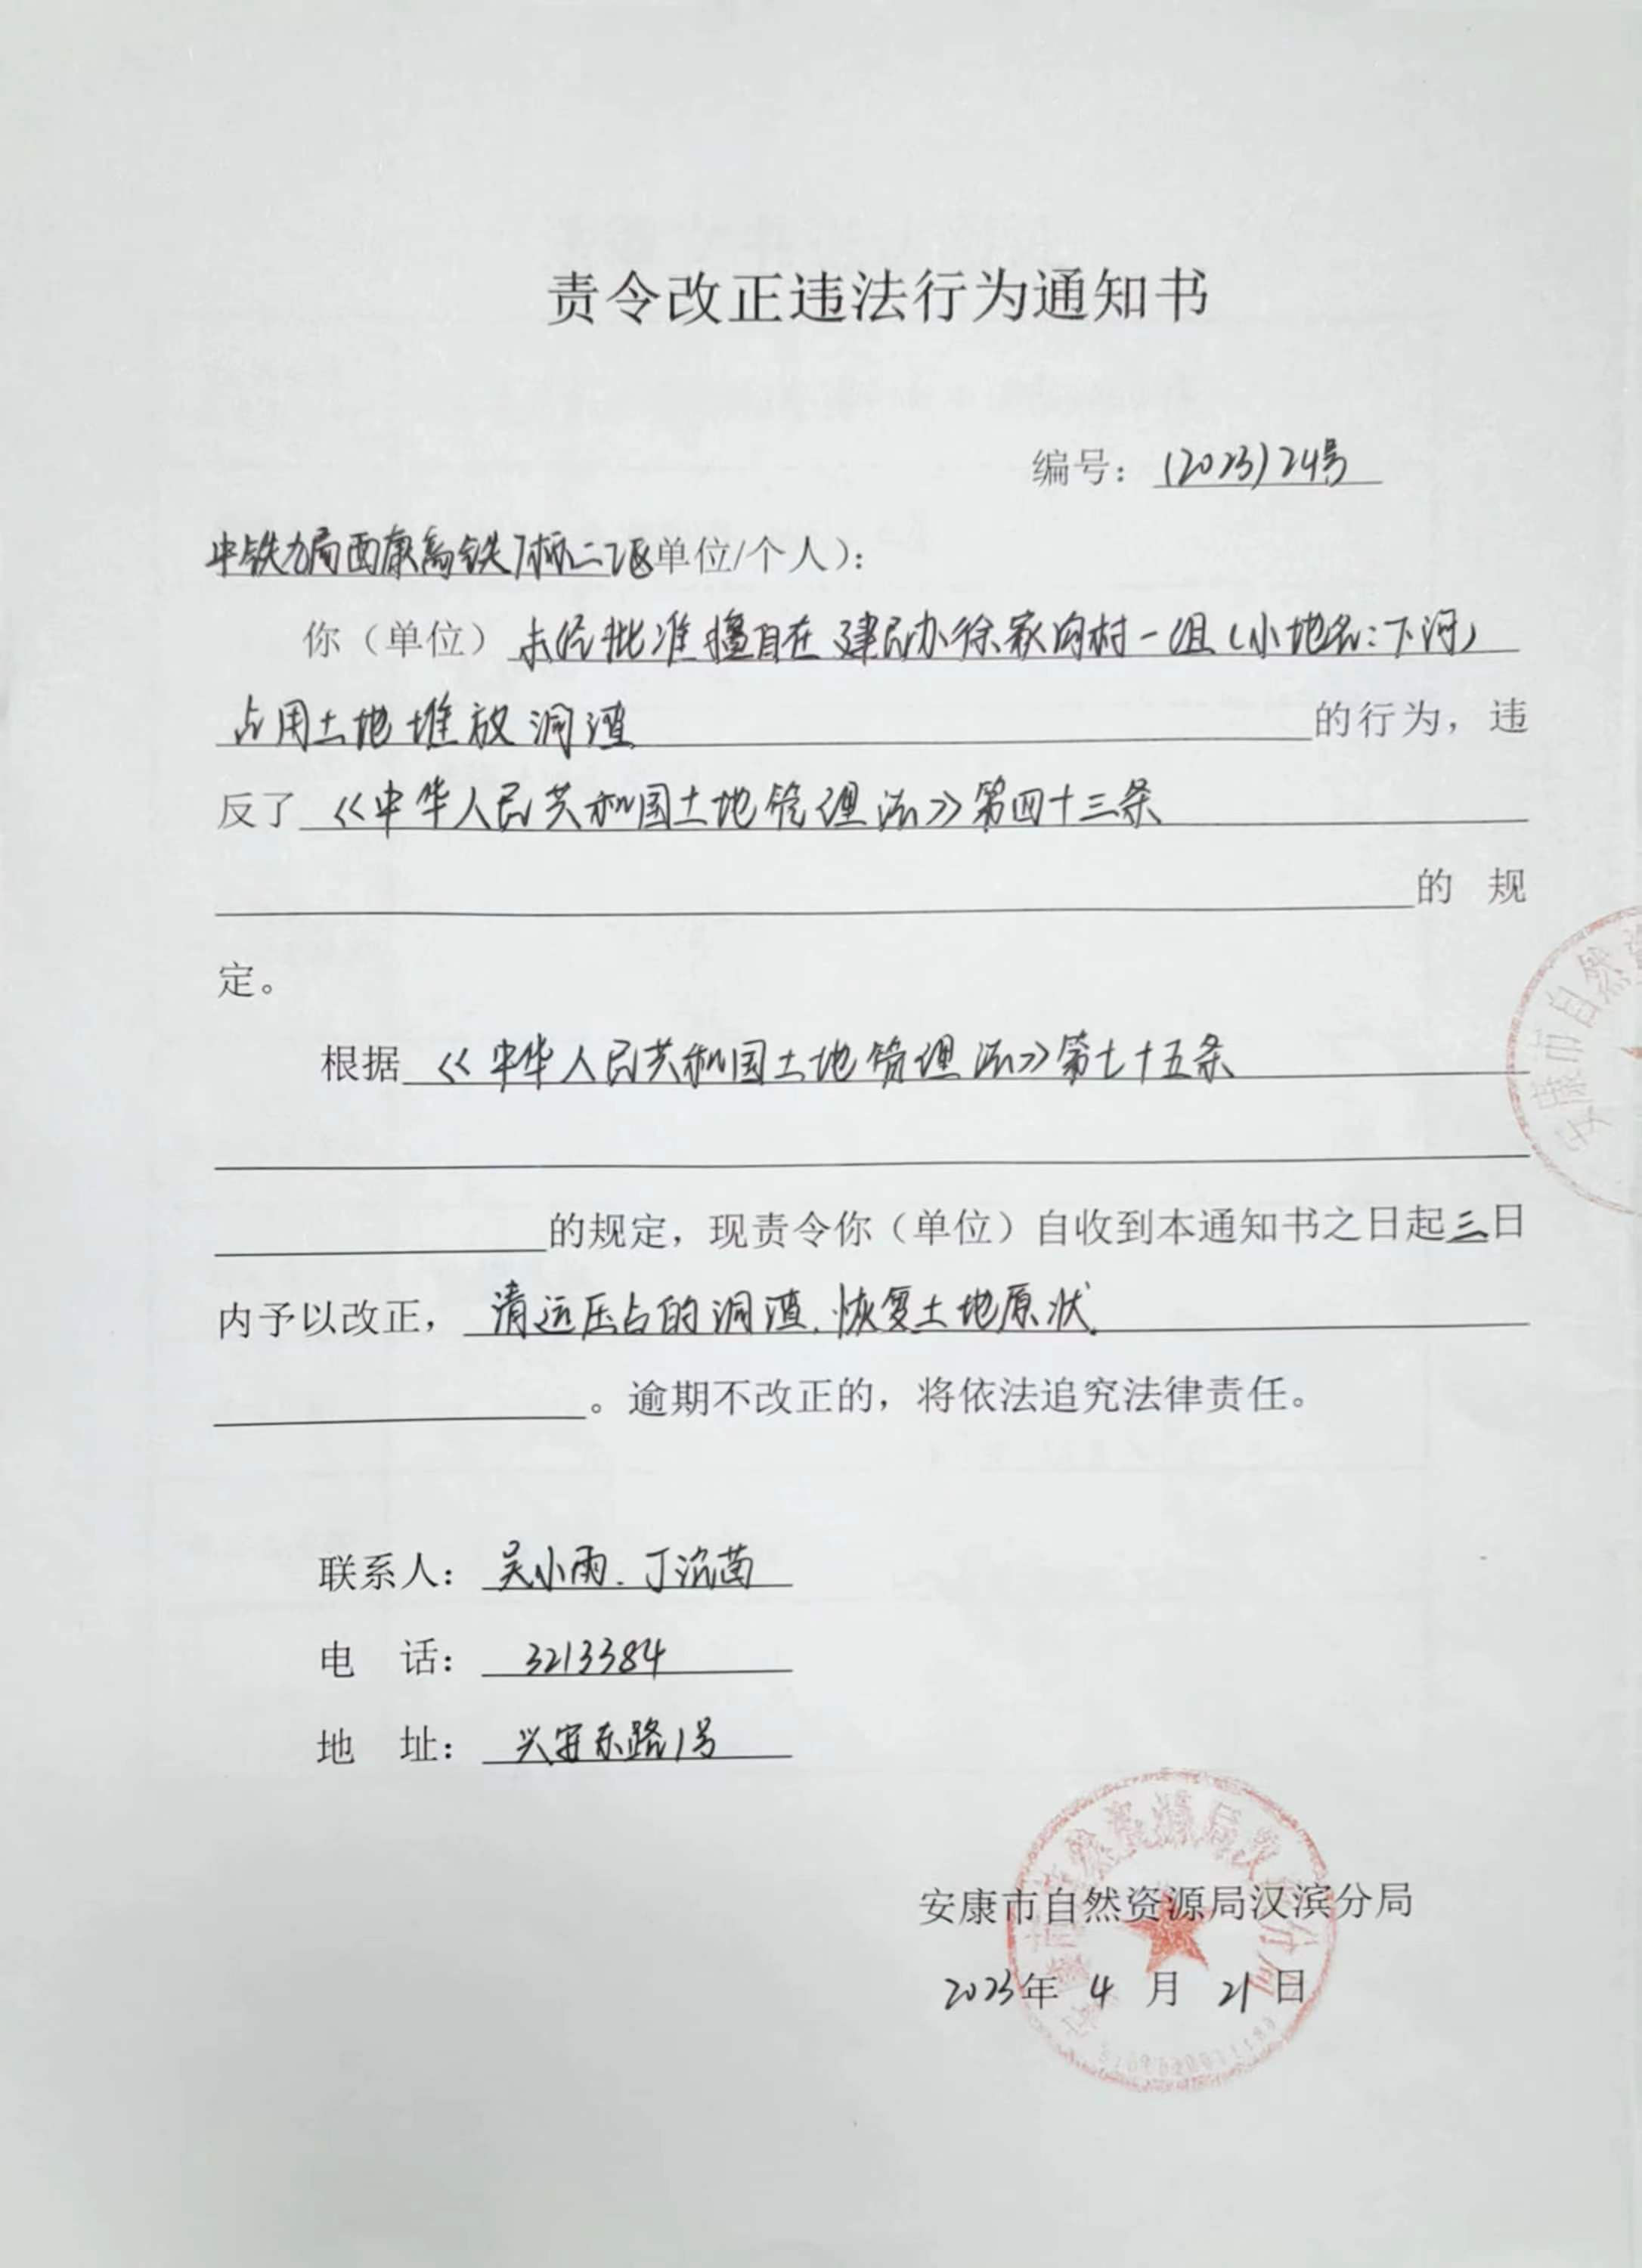 责令改正违法行为通知书
编号：（2023）24号
中铁九局西康高铁7标二江区单位/个人）：
你（单位）未经批准擅自在建民办徐家沟村一组（小地名：下河）
占用土地堆放洞渣的行为，违
反了《中华人民共和国土地管理法》第四十三条
的 规
定。
根据《中华人民共和国土地管理法》第七十五条
的规定，现责令你（单位）自收到本通知书之日起三日
内予以改正，清运压占的洞渣、恢复土地原状。
。逾期不改正的，将依法追究法律责任。
安康市自然资
联系人：吴小雨、丁 茵
电 话：3213384
地 址：兴安东路1号
安康市自然资源局汉滨分局
2023年 4 月 21 日